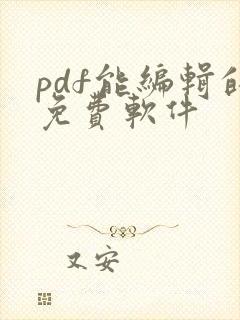 pdf能編輯的
免費軟件
又安